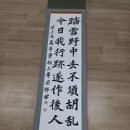 踏雪野中去不須胡乱
今日我行跡遂作後人